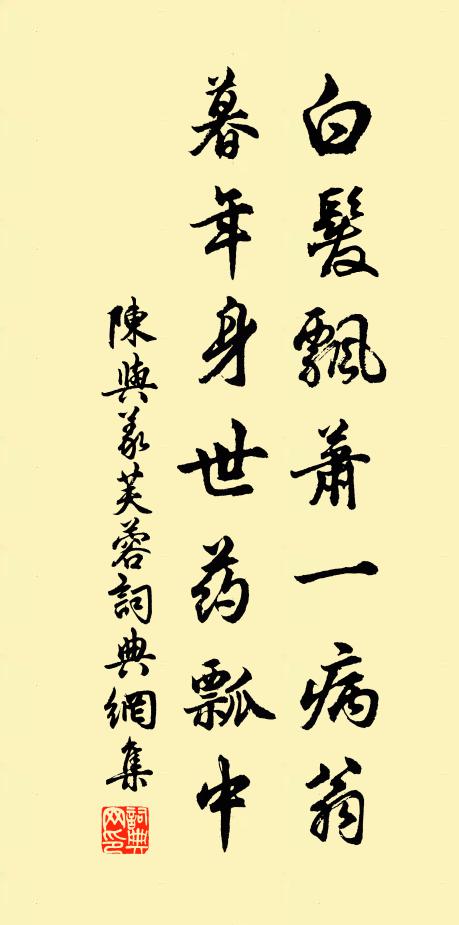 白髮飄萧一病翁
暮年身世药瓢中
陳與義芙蓉詞典網集
詞典網印